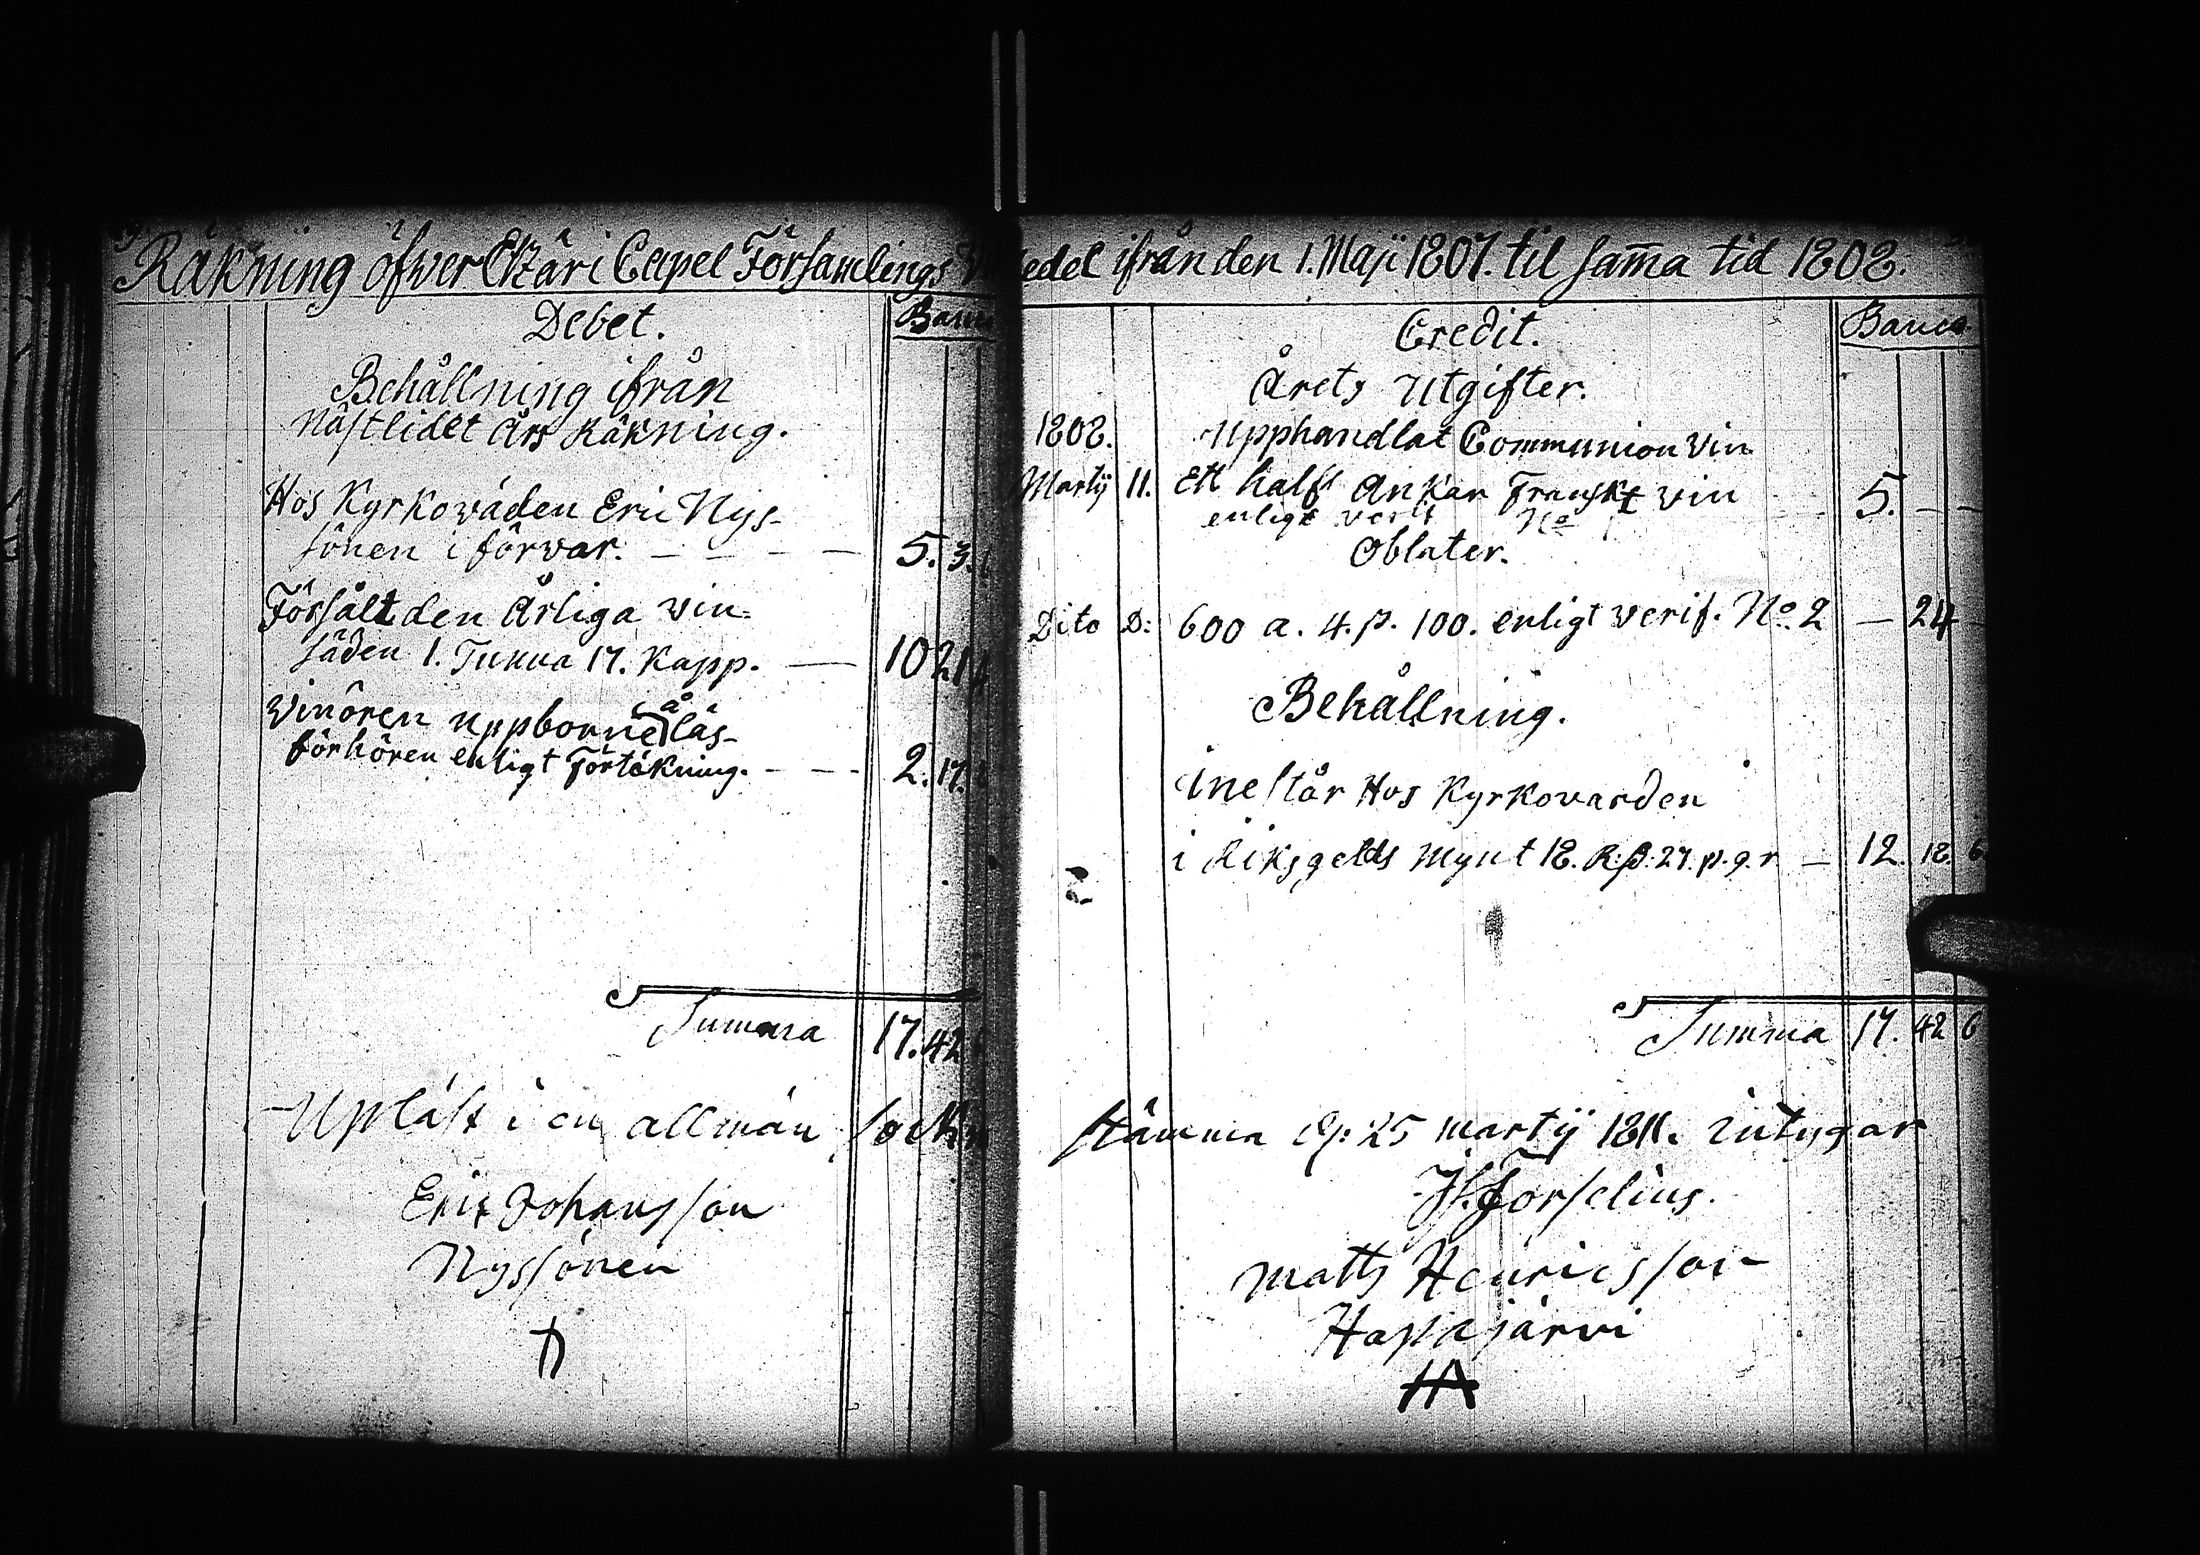 Räkning öfwer Etzäri Capel Församlings Medel ifrån den 1. Maji 1807. til samma tid 1808.
Debet.
Banco
Behållning ifrån
Nästlidet Års Räkning.
Hos Kyrkowäden Eric Nys-
sönen i förwar. — — — — 5. 3.
Försålt den Årliga win-
säden 1. Tunna 17. Kapp. — 10 21
Winören uppborne å läs-
förhören enligt Förtekning. - - - 2. 17.
Summa 17. 42
Upläst i en allmän Sockn
Eric Johansson
Nyssönen
Credit.
Banco
Årets Utgifter.
1808. Upphandlat Communion Vin
Martij 11. Ett halft Ankar Franskt win 5. — —
enligt verif No
Oblater.
Dito D: 600 a. 4. p. 100. enligt verif. No. 2 — 24 —
Behållning.
inestår Hos Kyrkowarden
i Riksgelds Mynt 18. R: ß: 27. p. g. r — 12. 18. 6
Summa 17. 42 6
stämma d: 25 martij 1811. intygar
Js. Forselius.
Matts Henricsson
Hapajärwi